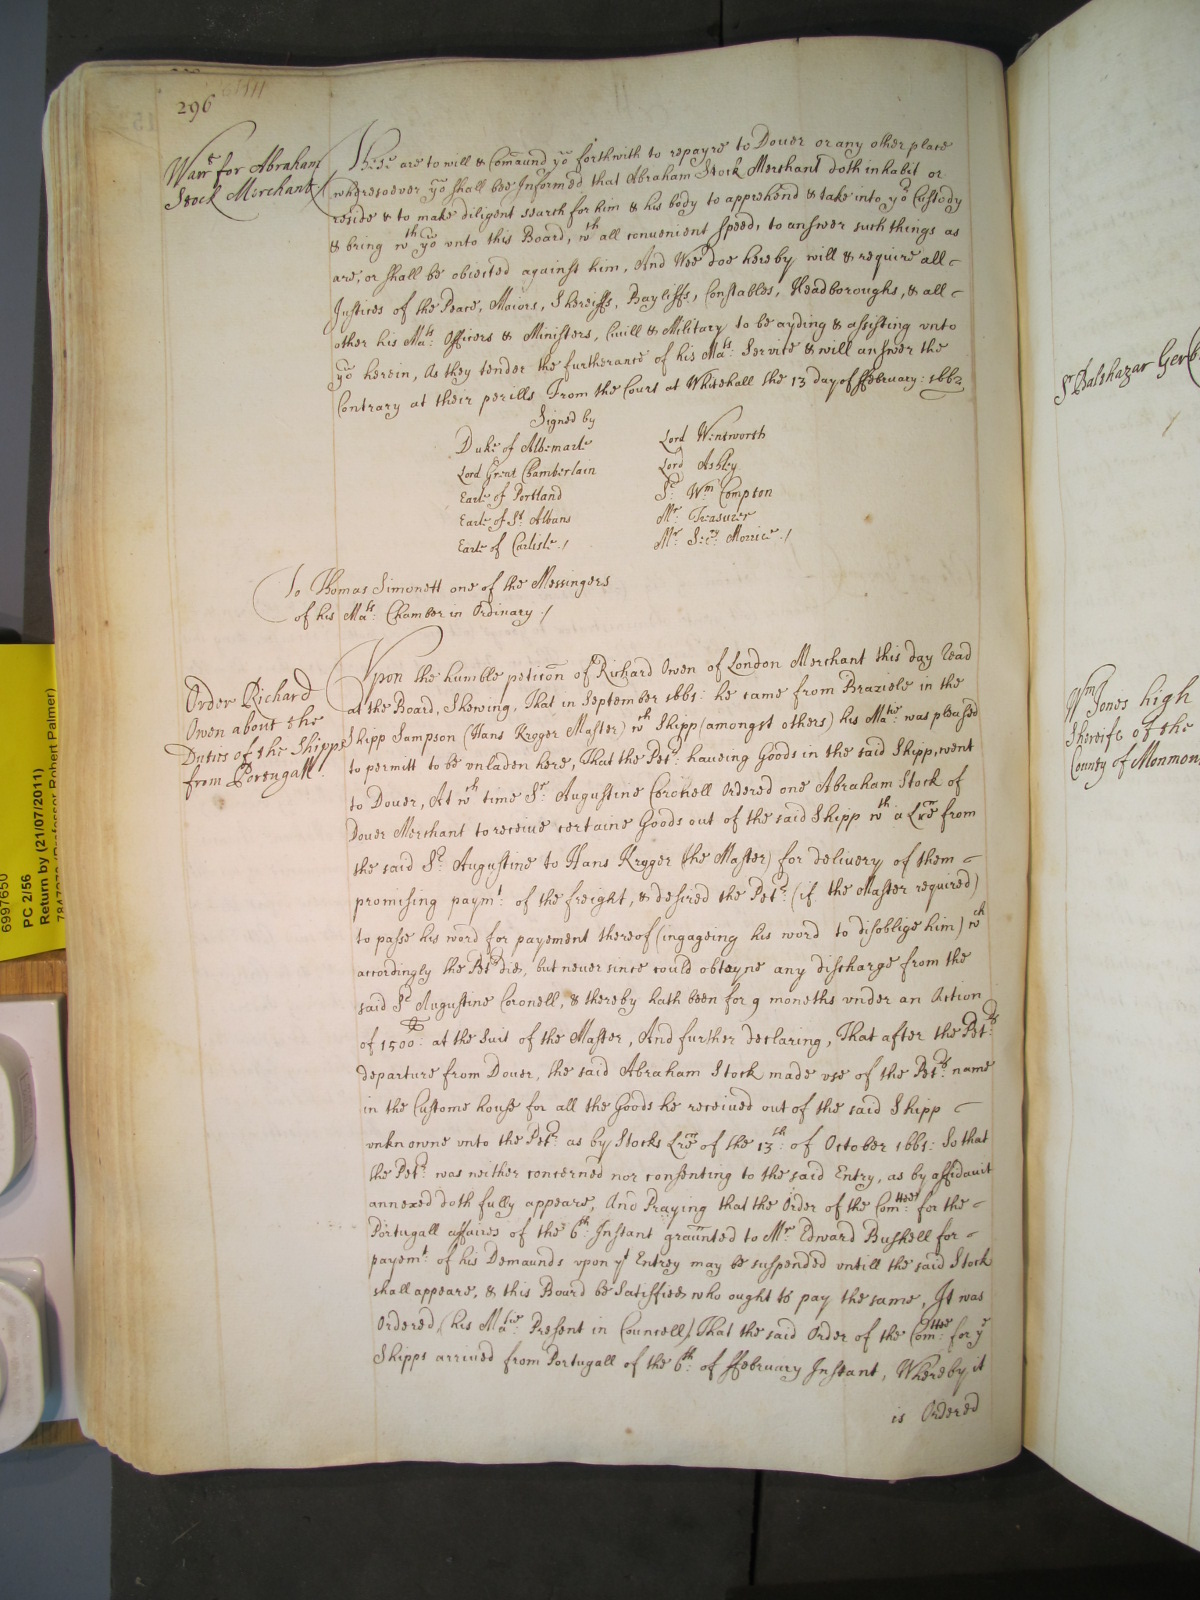 296
Warrt for Abraham
Stock Merchant
These are to will & Comaund yo forthwith to repayre to Dover or any other place
wheresoever yo shall bee Informed that Abraham Stock Merchant doth inhabit or
reside & to make diligent search for him & his body to apprehend & take into yor Custody
& bring wth yo vnto this Board, wth all convenient speed, to answer such things as
are, or shall be obiected against him, And Wee doe hereby will & require all
Justices of the Peace, Maiors, Shereiffs, Bayliffs, Constables, Headboroughs, & all
other his Mats: Officers & Ministers, Civill & Military to be ayding & assisting vnto
yo herein, As they tender the furtherance of his Mats: Service & will answer the
Contrary at their perills From the Court at Whitehall the 13 day of ffebruary: 1662
Signed by
Duke of Albemarle
Lord Great Chamberlain
Earle of Portland
Earle of St. Albans
Earle of Carlisle /
Lord Wentworth
Lord Ashley
Sr. Wm Compton
Mr. Treasurer
Mr. Secry Morrice /
To Thomas Simonett one of the Messingers
of his Mats: Chamber in Ordinary /
Order Richard
Owen about the
Duties of the Shipps
from Portugall.
Vpon the humble peticon of Richard Owen of London Merchant this day read
at the Board, Shewing, That in September 1661: he came from Braziele in the
Shipp Sampson (Hans Kroger Master) wth Shipp (amongst others) his Matie was pleased
to permitt to be vnladen here, That the Petr: haveing Goods in the said Shipp, went
to Dover, At wch time Sr. Augustine Coronell Ordered one Abraham Stock of
Dover Merchant to receive certaine Goods out of the said Shipp wth a Lre from
the said Sr. Augustine to Hans Kroger (the Master) for delivery of them
promising paymt: of the freight, & desired the Petr: (if the Master required)
to passe his word for payement thereof (ingageing his word to disoblige him) wch
accordingly the Petr did, but never since could obteyne any discharge from the
said Sr Augustine Coronell, & thereby hath been for 9 moneths vnder an Action
of 1500: at the Suit of the Master, And further declaring, That after the Petrs:
departure from Dover, the said Abraham Stock made vse of the Petrs: name
in the Custome house for all the Goods he received out of the said Shipp
vnknowne vnto the Petr: as by Stocks Lre of the 13th: of October 1661: So that
the Petr: was neither concerned nor consenting to the said Entry, as by affidavit
annexed doth fully appeare, And Praying that the Order of the Comttee: for the
Portugall affaires of the 6th: Instant graunted to Mr. Edward Bushell for
payemt: of his Demaunds vpon yt Entrey may be suspended vntill the said Stock
shall appeare, & this Board be Satisfied who ought to pay the same, It was
Ordered, (his Matie: Present in Councell) That the said Order of the Comttee: for ye
Shipps arrived from Portugall of the 6th: of ffebruary Instant, Whereby it
is Ordered
Sr Balthazar Gerb
Wm Jones high
Shereife of the
County of Monmo
6997650
PC 2/56
Return by (21/07/2011)
(Professor Robert Palmer)